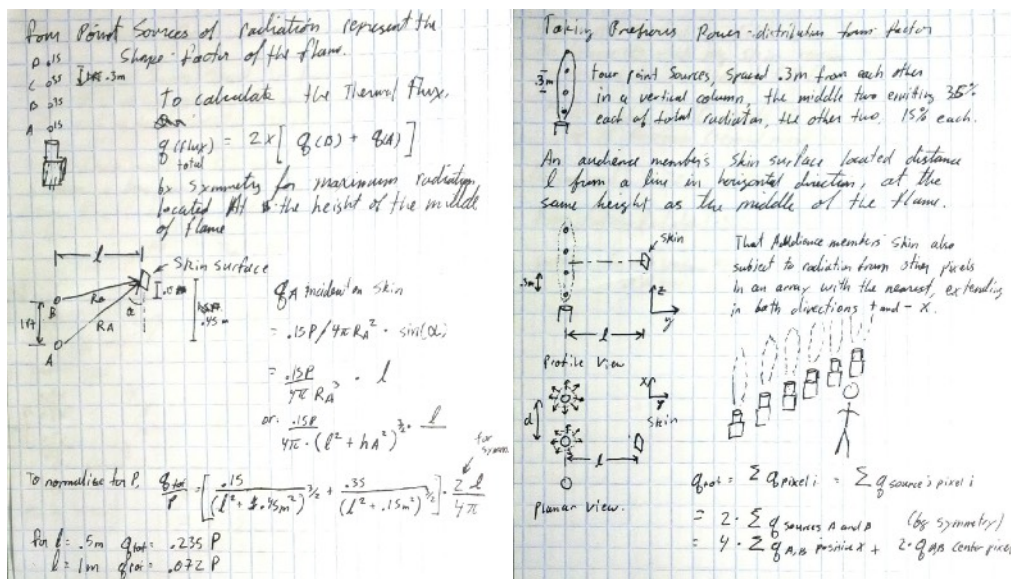 Four Point Sources of radiation represent the
Shape-Factor of the flame.
D .15
C .35
.3m
B .35
A .15
To calculate the Thermal Flux,
q (flux) total = 2 x [ q(B) + q(A) ]
by symmetry for maximum radiation
located At the height of the middle
of flame
l
Skin surface
B
RB
α
1ft
RA
A
.45m
qA incident on skin
= .15P / 4π RA² · sin(α)
= .15P / 4π RA³ · l
or: .15P / 4π · (l² + hA²)^3/2 · l
for symm.
To normalise for P, qtot / P = [ .15 / (l² + .45m²)^3/2 + .35 / (l² + .15m²)^3/2 ] · 2l / 4π
for l = .5m qtot = .235 P
l = 1m qtot = .072 P
Taking Previous Power-distribution form factor
.3m
four point Sources, spaced .3m from each other
in a vertical column, the middle two emitting 35%
each of total radiation, the other two, 15% each.
An audience member's skin surface located distance
l from a line in horizontal direction, at the
same height as the middle of the flame.
skin
.3m
z
y
l
Profile view
That Audience members' skin also
subject to radiation from other pixels
in an array with the nearest, extending
in both directions + and - x.
x
y
d
skin
l
Planar view.
qtot = Σ q pixel i = Σ q source's pixel i
= 2 · Σ q sources A and B (by symmetry)
= 4 · Σ q A,B positive x + 2 · q A,B center pixel